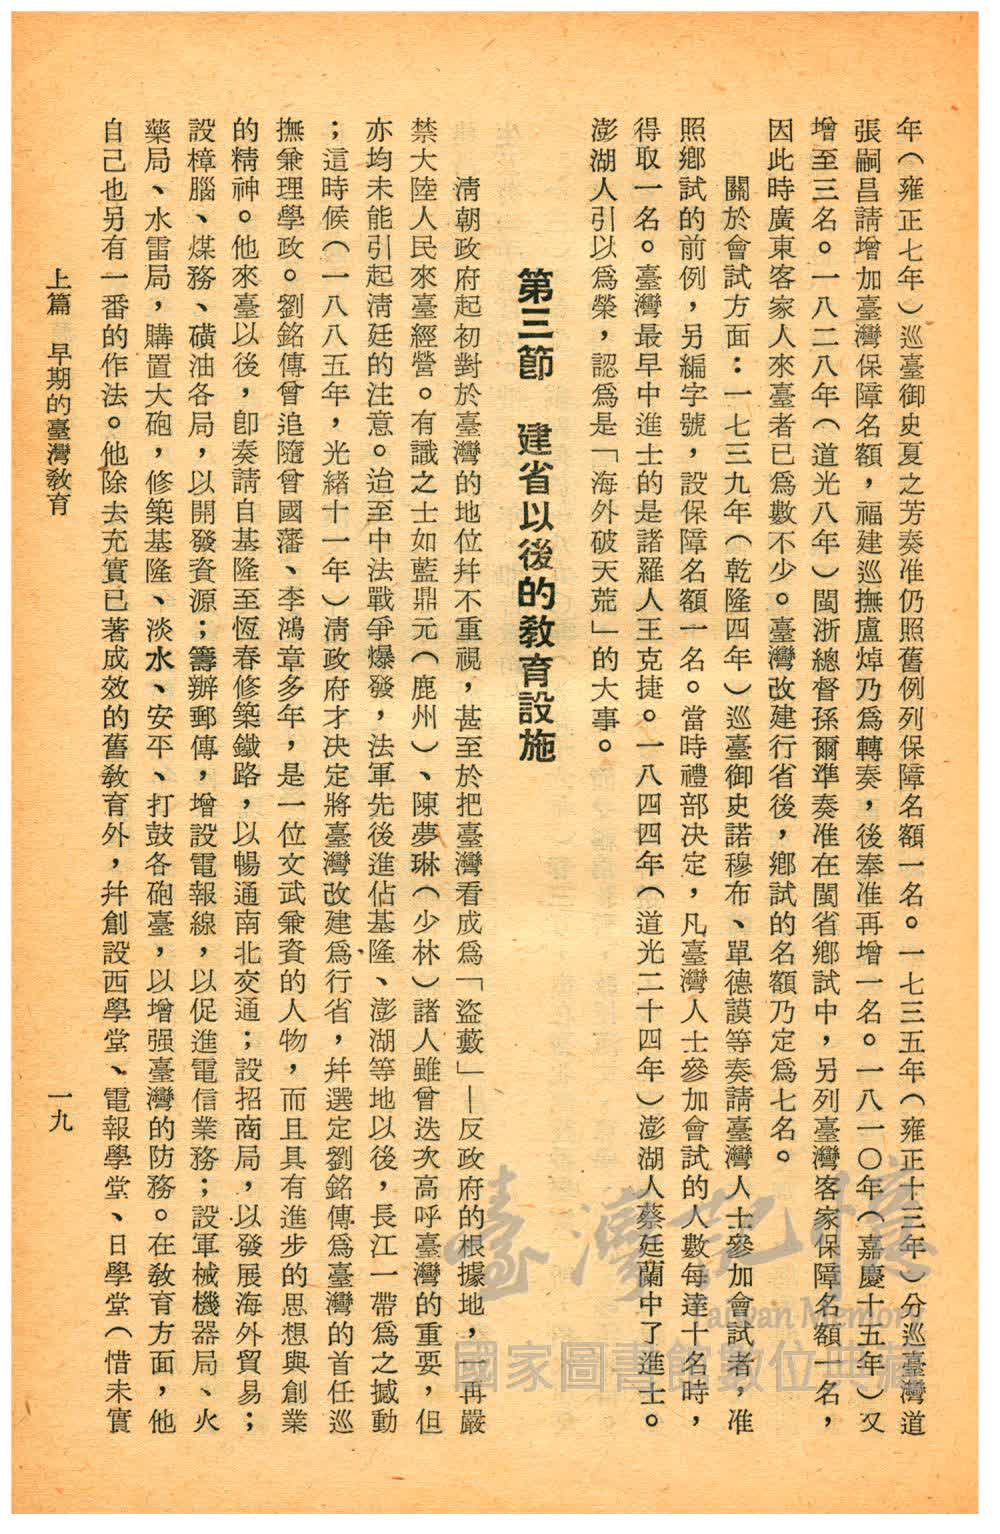 年（雍正七年）巡臺御史夏之芳奏准仍照舊例列保障名額一名。一七三五年（雍正十三年）分巡臺灣道
張嗣昌請增加臺灣保障名額，福建巡撫盧焯乃爲轉奏，後奉准再增一名。一八一〇年（嘉慶十五年）又
增至三名。一八二八年（道光八年）閩浙總督孫爾準奏准在閩省鄉試中，另列臺灣客家保障名額一名，
因此時廣東客家人來臺者已爲數不少。臺灣改建行省後，鄉試的名額乃定爲七名。
關於會試方面：一七三九年（乾隆四年）巡臺御史諾穆布、單德謨等奏請臺灣人士參加會試者，准
照鄉試的前例，另編字號，設保障名額一名。當時禮部決定，凡臺灣人士參加會試的人數每達十名時，
得取一名。臺灣最早中進士的是諸羅人王克捷。一八四四年（道光二十四年）澎湖人蔡廷蘭中了進士。
澎湖人引以爲榮，認爲是「海外破天荒」的大事。
第三節　建省以後的教育設施
淸朝政府起初對於臺灣的地位幷不重視，甚至於把臺灣看成爲「盜藪」—反政府的根據地，一再嚴
禁大陸人民來臺經營。有識之士如藍鼎元（鹿州）、陳夢琳（少林）諸人雖曾迭次高呼臺灣的重要，但
亦均未能引起淸廷的注意。迨至中法戰爭爆發，法軍先後進佔基隆、澎湖等地以後，長江一帶爲之撼動
；這時候（一八八五年，光緒十一年）淸政府才決定將臺灣改建爲行省，幷選定劉銘傳爲臺灣的首任巡
撫兼理學政。劉銘傳曾追隨曾國藩、李鴻章多年，是一位文武兼資的人物，而且具有進步的思想與創業
的精神。他來臺以後，卽奏請自基隆至恆春修築鐵路，以暢通南北交通；設招商局，以發展海外貿易；
設樟腦、煤務、磺油各局，以開發資源；籌辦郵傳，增設電報線，以促進電信業務；設軍械機器局、火
藥局、水雷局，購置大砲，修築基隆、淡水、安平、打鼓各砲臺，以增强臺灣的防務。在教育方面，他
自己也另有一番的作法。他除去充實已著成效的舊教育外，幷創設西學堂、電報學堂、日學堂（惜未實
上篇　早期的臺灣教育　一九
臺灣記憶
Taiwan Memory
國家圖書館數位典藏